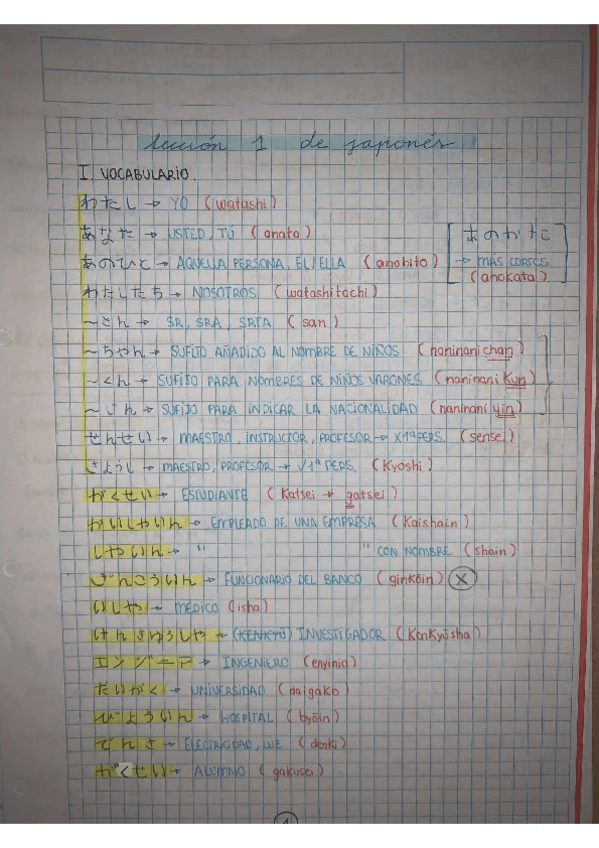 lección 1 de japonés
I. VOCABULARIO.
わたし → YO (watashi)
あなた → USTED, TÚ (anata)
[あのかた → MAS CORTES (anokata)]
あのひと → AQUELLA PERSONA, EL/ELLA (anohito)
わたしたち → NOSOTROS (watashitachi)
~さん → SR, SRA, SRTA (san)
~ちゃん → SUFIJO AÑADIDO AL NOMBRE DE NIÑOS (naninani chan)
~くん → SUFIJO PARA NOMBRES DE NIÑOS VARONES (naninani Kun)
~じん → SUFIJO PARA INDICAR LA NACIONALIDAD (naninani yin)
せんせい → MAESTRO, INSTRUCTOR, PROFESOR → X 1ª PERS. (sensei)
きょうし → MAESTRO, PROFESOR → √ 1ª PERS. (Kyoshi)
がくせい → ESTUDIANTE (Katsei → gatsei)
かいしゃいん → EMPLEADO DE UNA EMPRESA (Kaishain)
しゃいん → " " CON NOMBRE (shain)
ぎんこういん → FUNCIONARIO DEL BANCO (ginkōin) X
いしゃ → MÉDICO (isha)
けんきゅうしゃ → (KENKYŪ) INVESTIGADOR (Kenkyūsha)
エンジニア → INGENIERO (enyinia)
だいがく → UNIVERSIDAD (daigako)
びょういん → HOSPITAL (byōin)
でんき → ELECTRICIDAD, LUZ (denki)
がくせい → ALUMNO (gakusei)